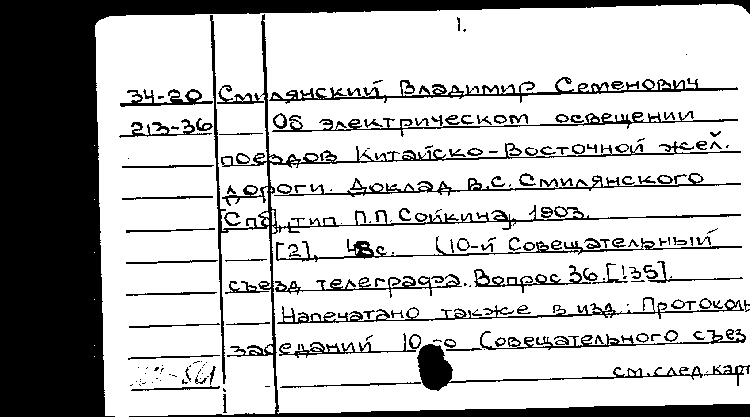 1.
34-20 Смилянский, Владимир Семенович
213-36 Об электрическом освещении
поездов Китайско-Восточной жел.
дороги. Доклад В.С. Смилянского
[Спб], тип. П.П. Сойкина, 1903.
[2], с. (10-й Совещательный
съезд телеграфа. Вопрос 36.[!35].
Напечатано также в изд.: Протоколы
заседаний 10-го Совещательного съез
см.след.карт